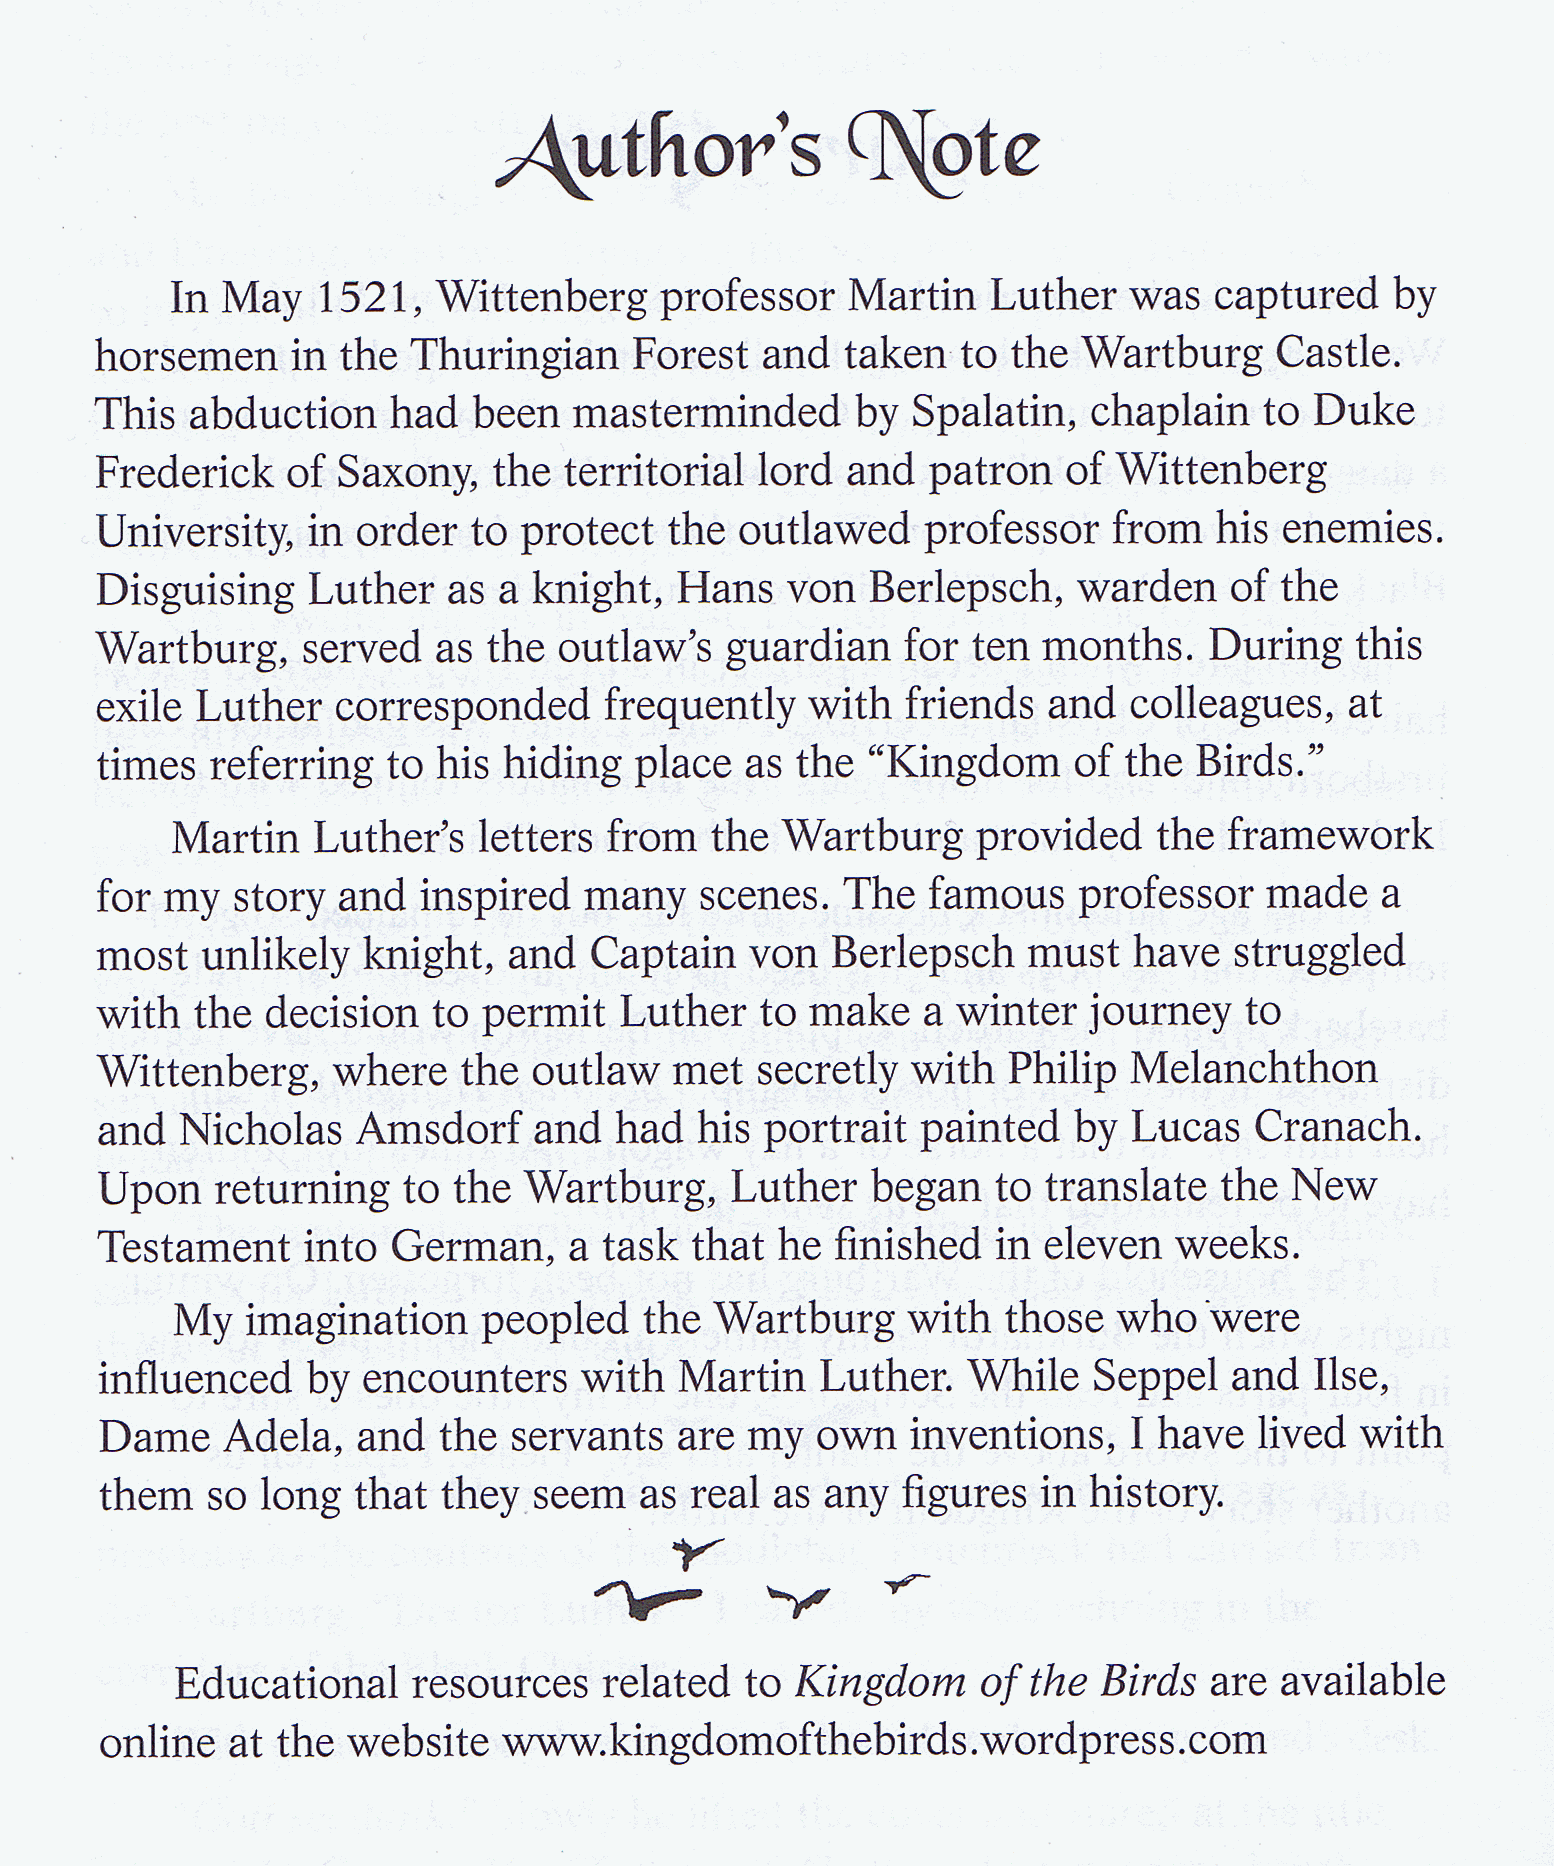 Author's Note
In May 1521, Wittenberg professor Martin Luther was captured by
horsemen in the Thuringian Forest and taken to the Wartburg Castle.
This abduction had been masterminded by Spalatin, chaplain to Duke
Frederick of Saxony, the territorial lord and patron of Wittenberg
University, in order to protect the outlawed professor from his enemies.
Disguising Luther as a knight, Hans von Berlepsch, warden of the
Wartburg, served as the outlaw's guardian for ten months. During this
exile Luther corresponded frequently with friends and colleagues, at
times referring to his hiding place as the “Kingdom of the Birds.”
Martin Luther's letters from the Wartburg provided the framework
for my story and inspired many scenes. The famous professor made a
most unlikely knight, and Captain von Berlepsch must have struggled
with the decision to permit Luther to make a winter journey to
Wittenberg, where the outlaw met secretly with Philip Melanchthon
and Nicholas Amsdorf and had his portrait painted by Lucas Cranach.
Upon returning to the Wartburg, Luther began to translate the New
Testament into German, a task that he finished in eleven weeks.
My imagination peopled the Wartburg with those who were
influenced by encounters with Martin Luther. While Seppel and Ilse,
Dame Adela, and the servants are my own inventions, I have lived with
them so long that they seem as real as any figures in history.
Educational resources related to Kingdom of the Birds are available
online at the website www.kingdomofthebirds.wordpress.com